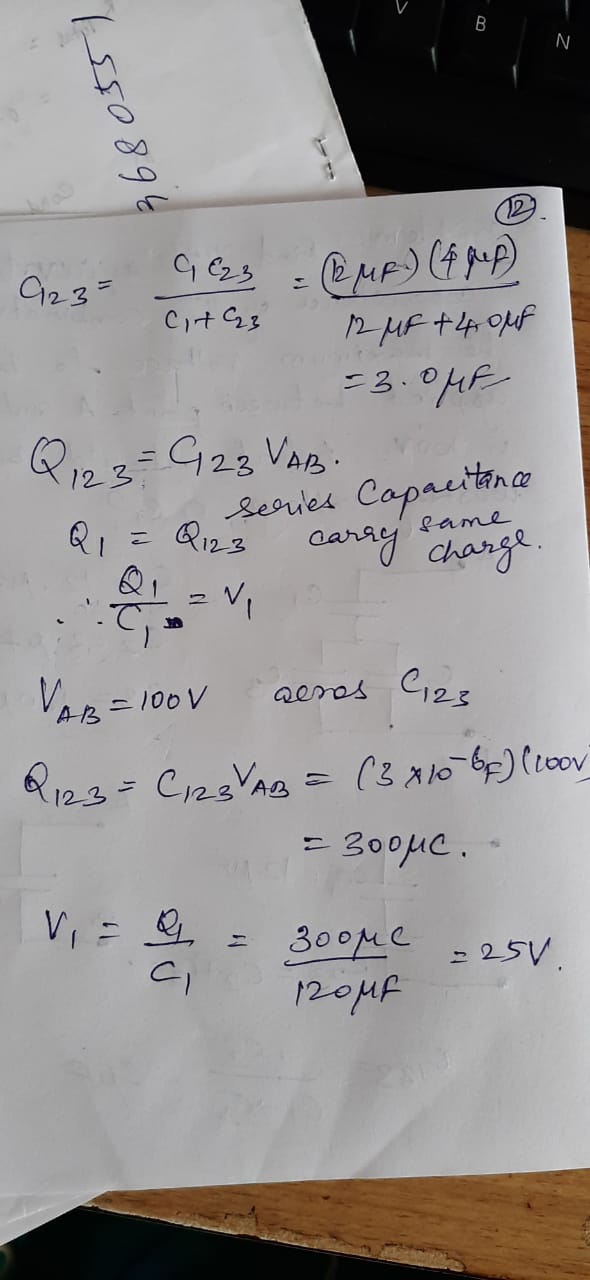 V
B
N
3680551
12
C123 = C1 C23 / C1 + C23 = (12 μF) (4 μF) / 12 μF + 4.0 μF
= 3.0 μF
Q123 = C123 VAB.
series Capacitance
Q1 = Q123 carry same
charge.
∴ Q1 / C1 = V1
VAB = 100V acros C123
Q123 = C123 VAB = (3 × 10⁻⁶F) (100V)
= 300 μC.
V1 = Q1 / C1 = 300 μC / 120 μF = 25V.